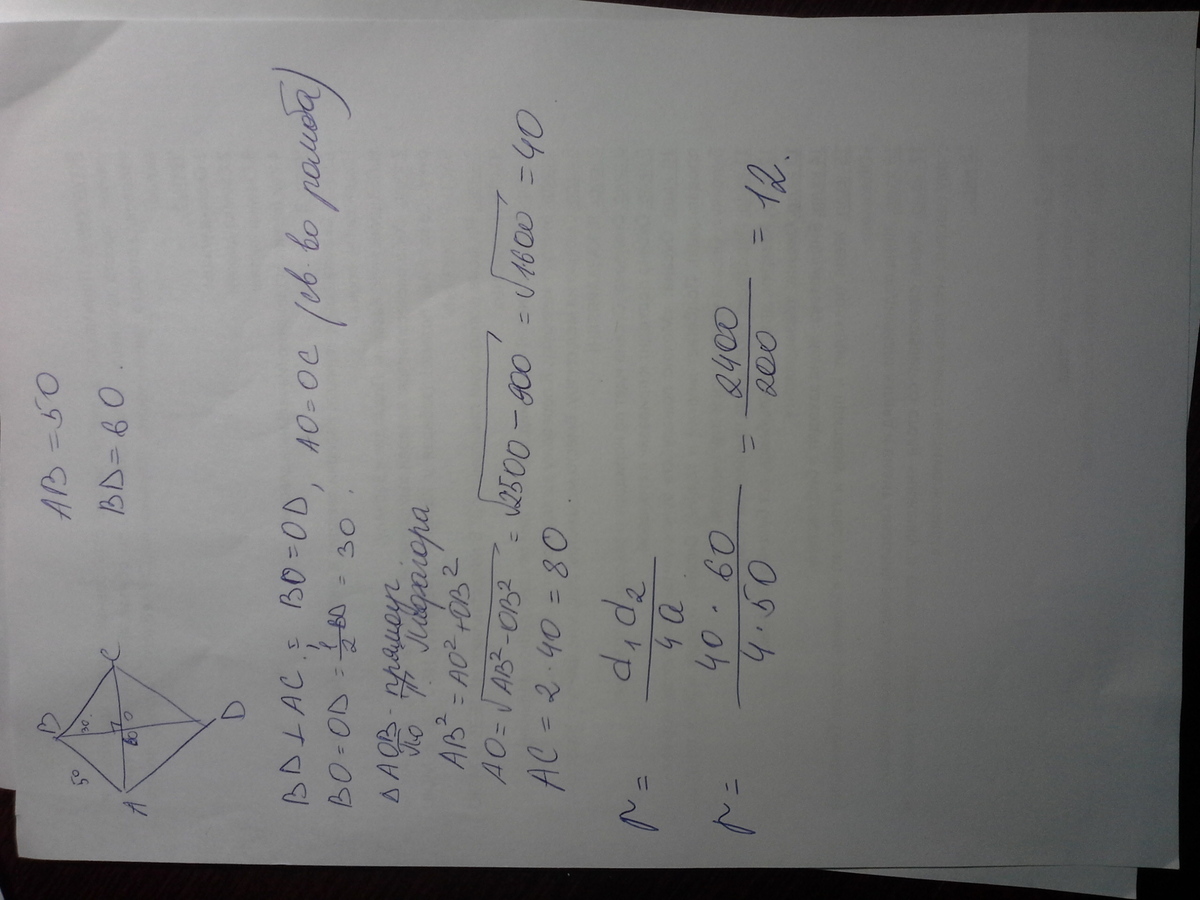 B
50
30.
C
60
O
A
D
AB = 50
BD = 60.
BD ⊥ AC. = BO = OD, AO = OC (св-во ромба)
BO = OD = 1/2 BD = 30.
∆ AOB - прямоуг
По т. Пифагора
AB² = AO² + OB²
AO = √AB² - OB² = √2500 - 900 = √1600 = 40
AC = 2 · 40 = 80.
r = d₁ d₂ / 4a
r = 40 · 60 / 4 · 50 = 2400 / 200 = 12.